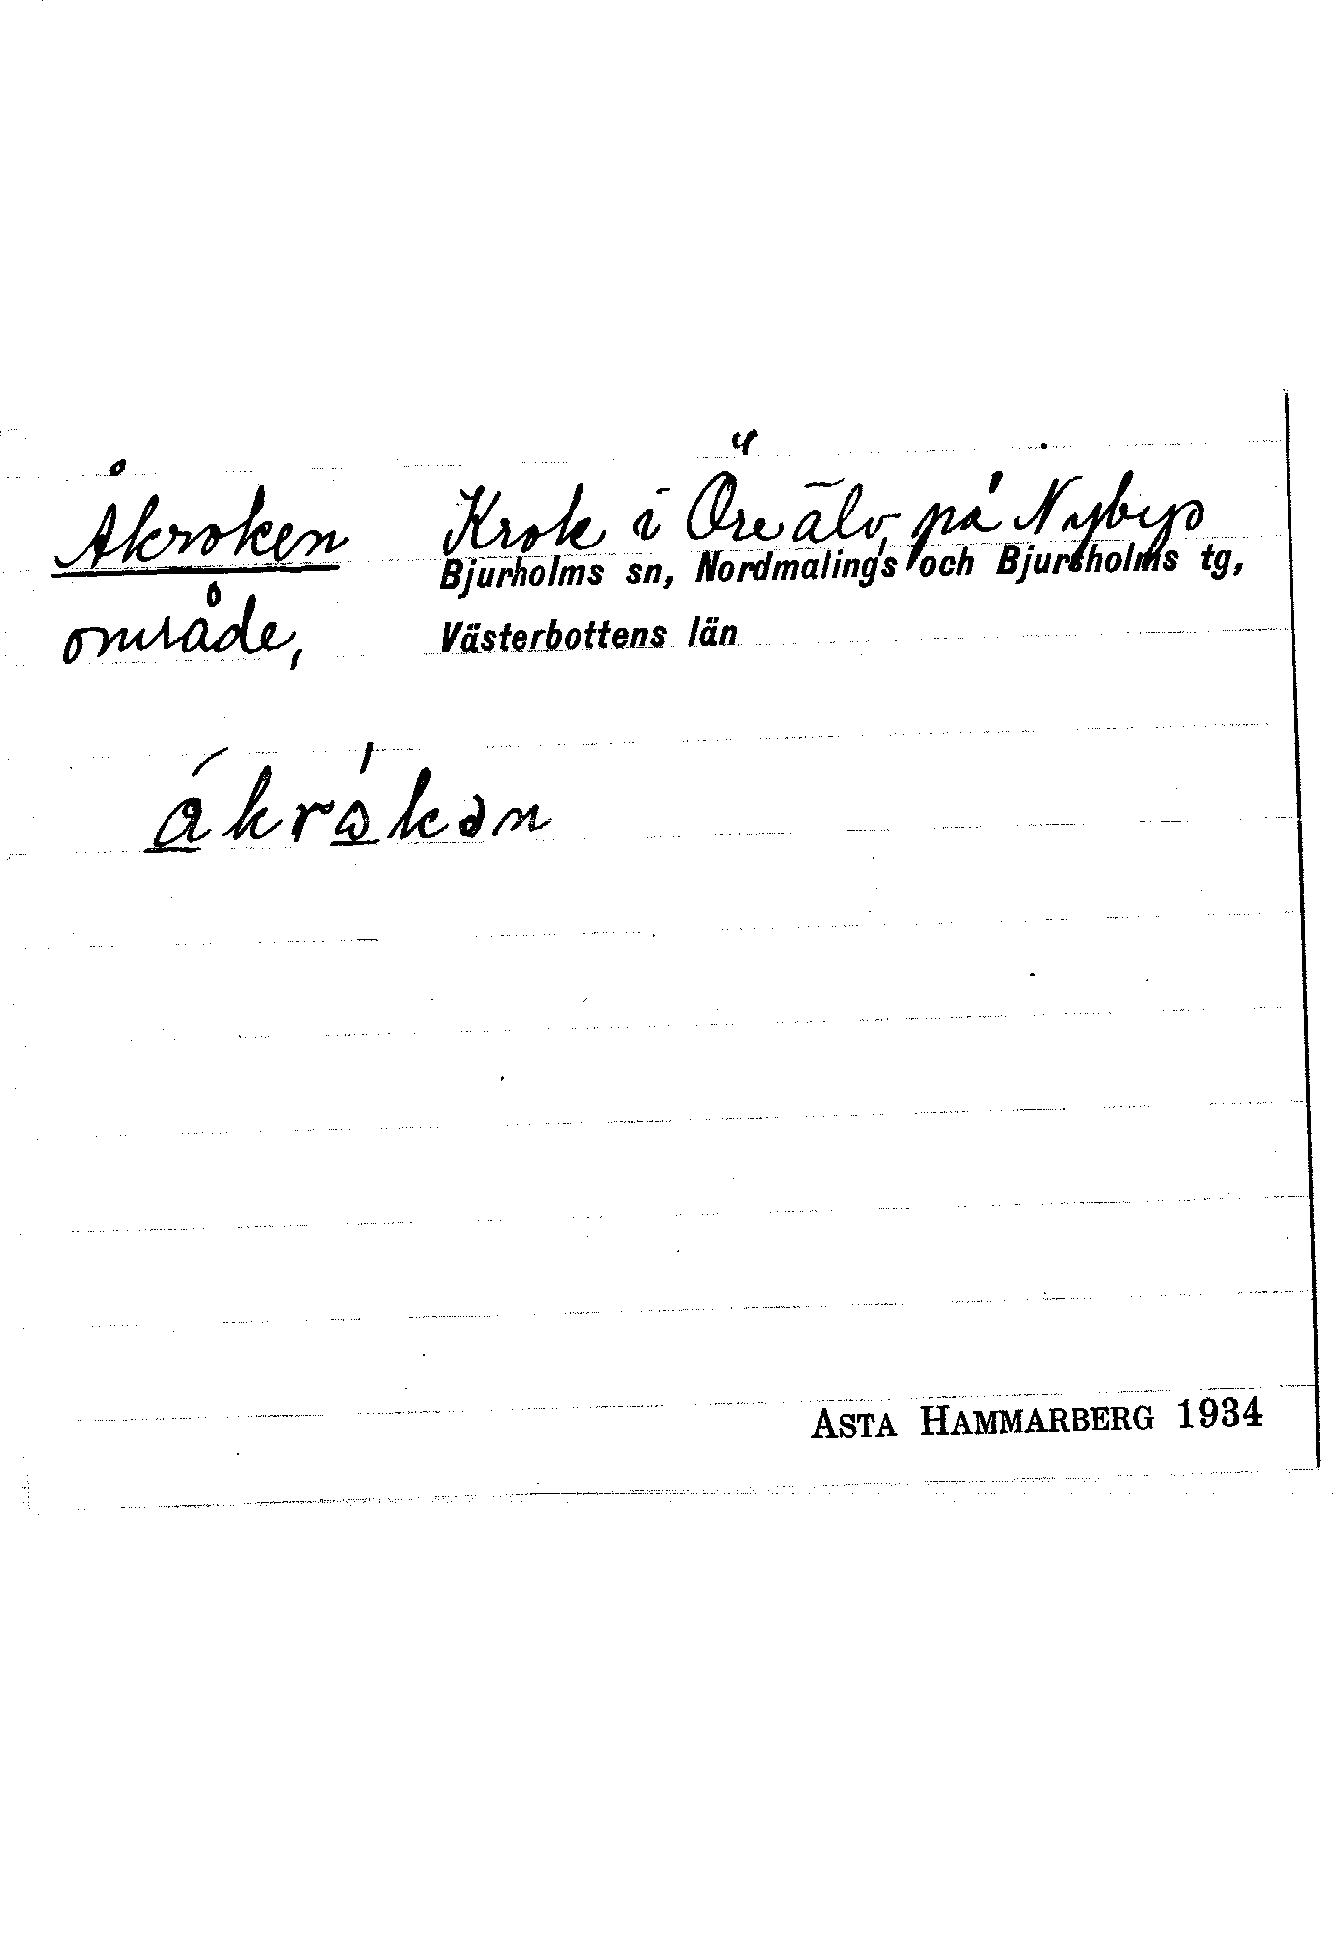 Åkroken Krok i Öre älv, på Nybys
Bjurholms sn, Nordmalings och Bjurholms tg,
område, Västerbottens län
åkrøkən
ASTA HAMMARBERG 1934